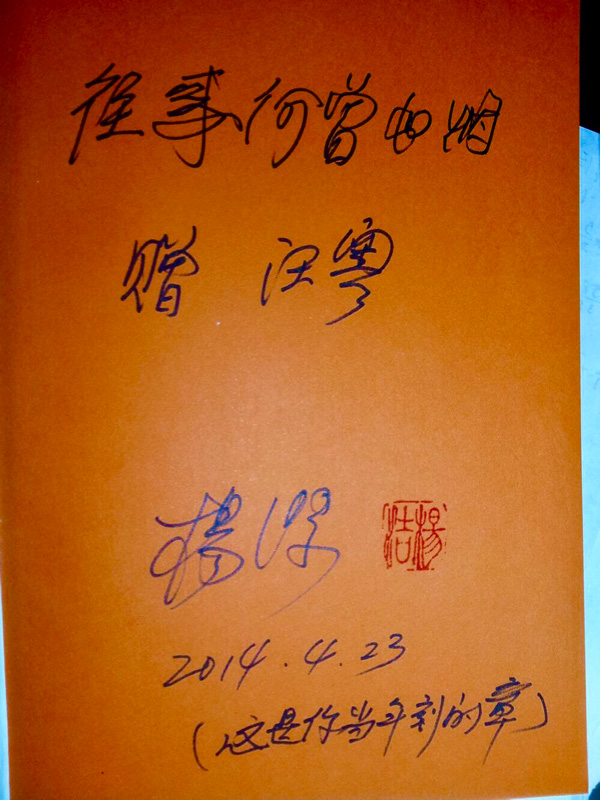 往事何曾如烟
赠 汪粤
杨浩
杨浩
2014.4.23
(这是你当年刻的章)